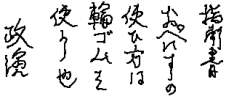 指南書
おぺにすの
使ひ方は
輪ゴムを
使う也
政演